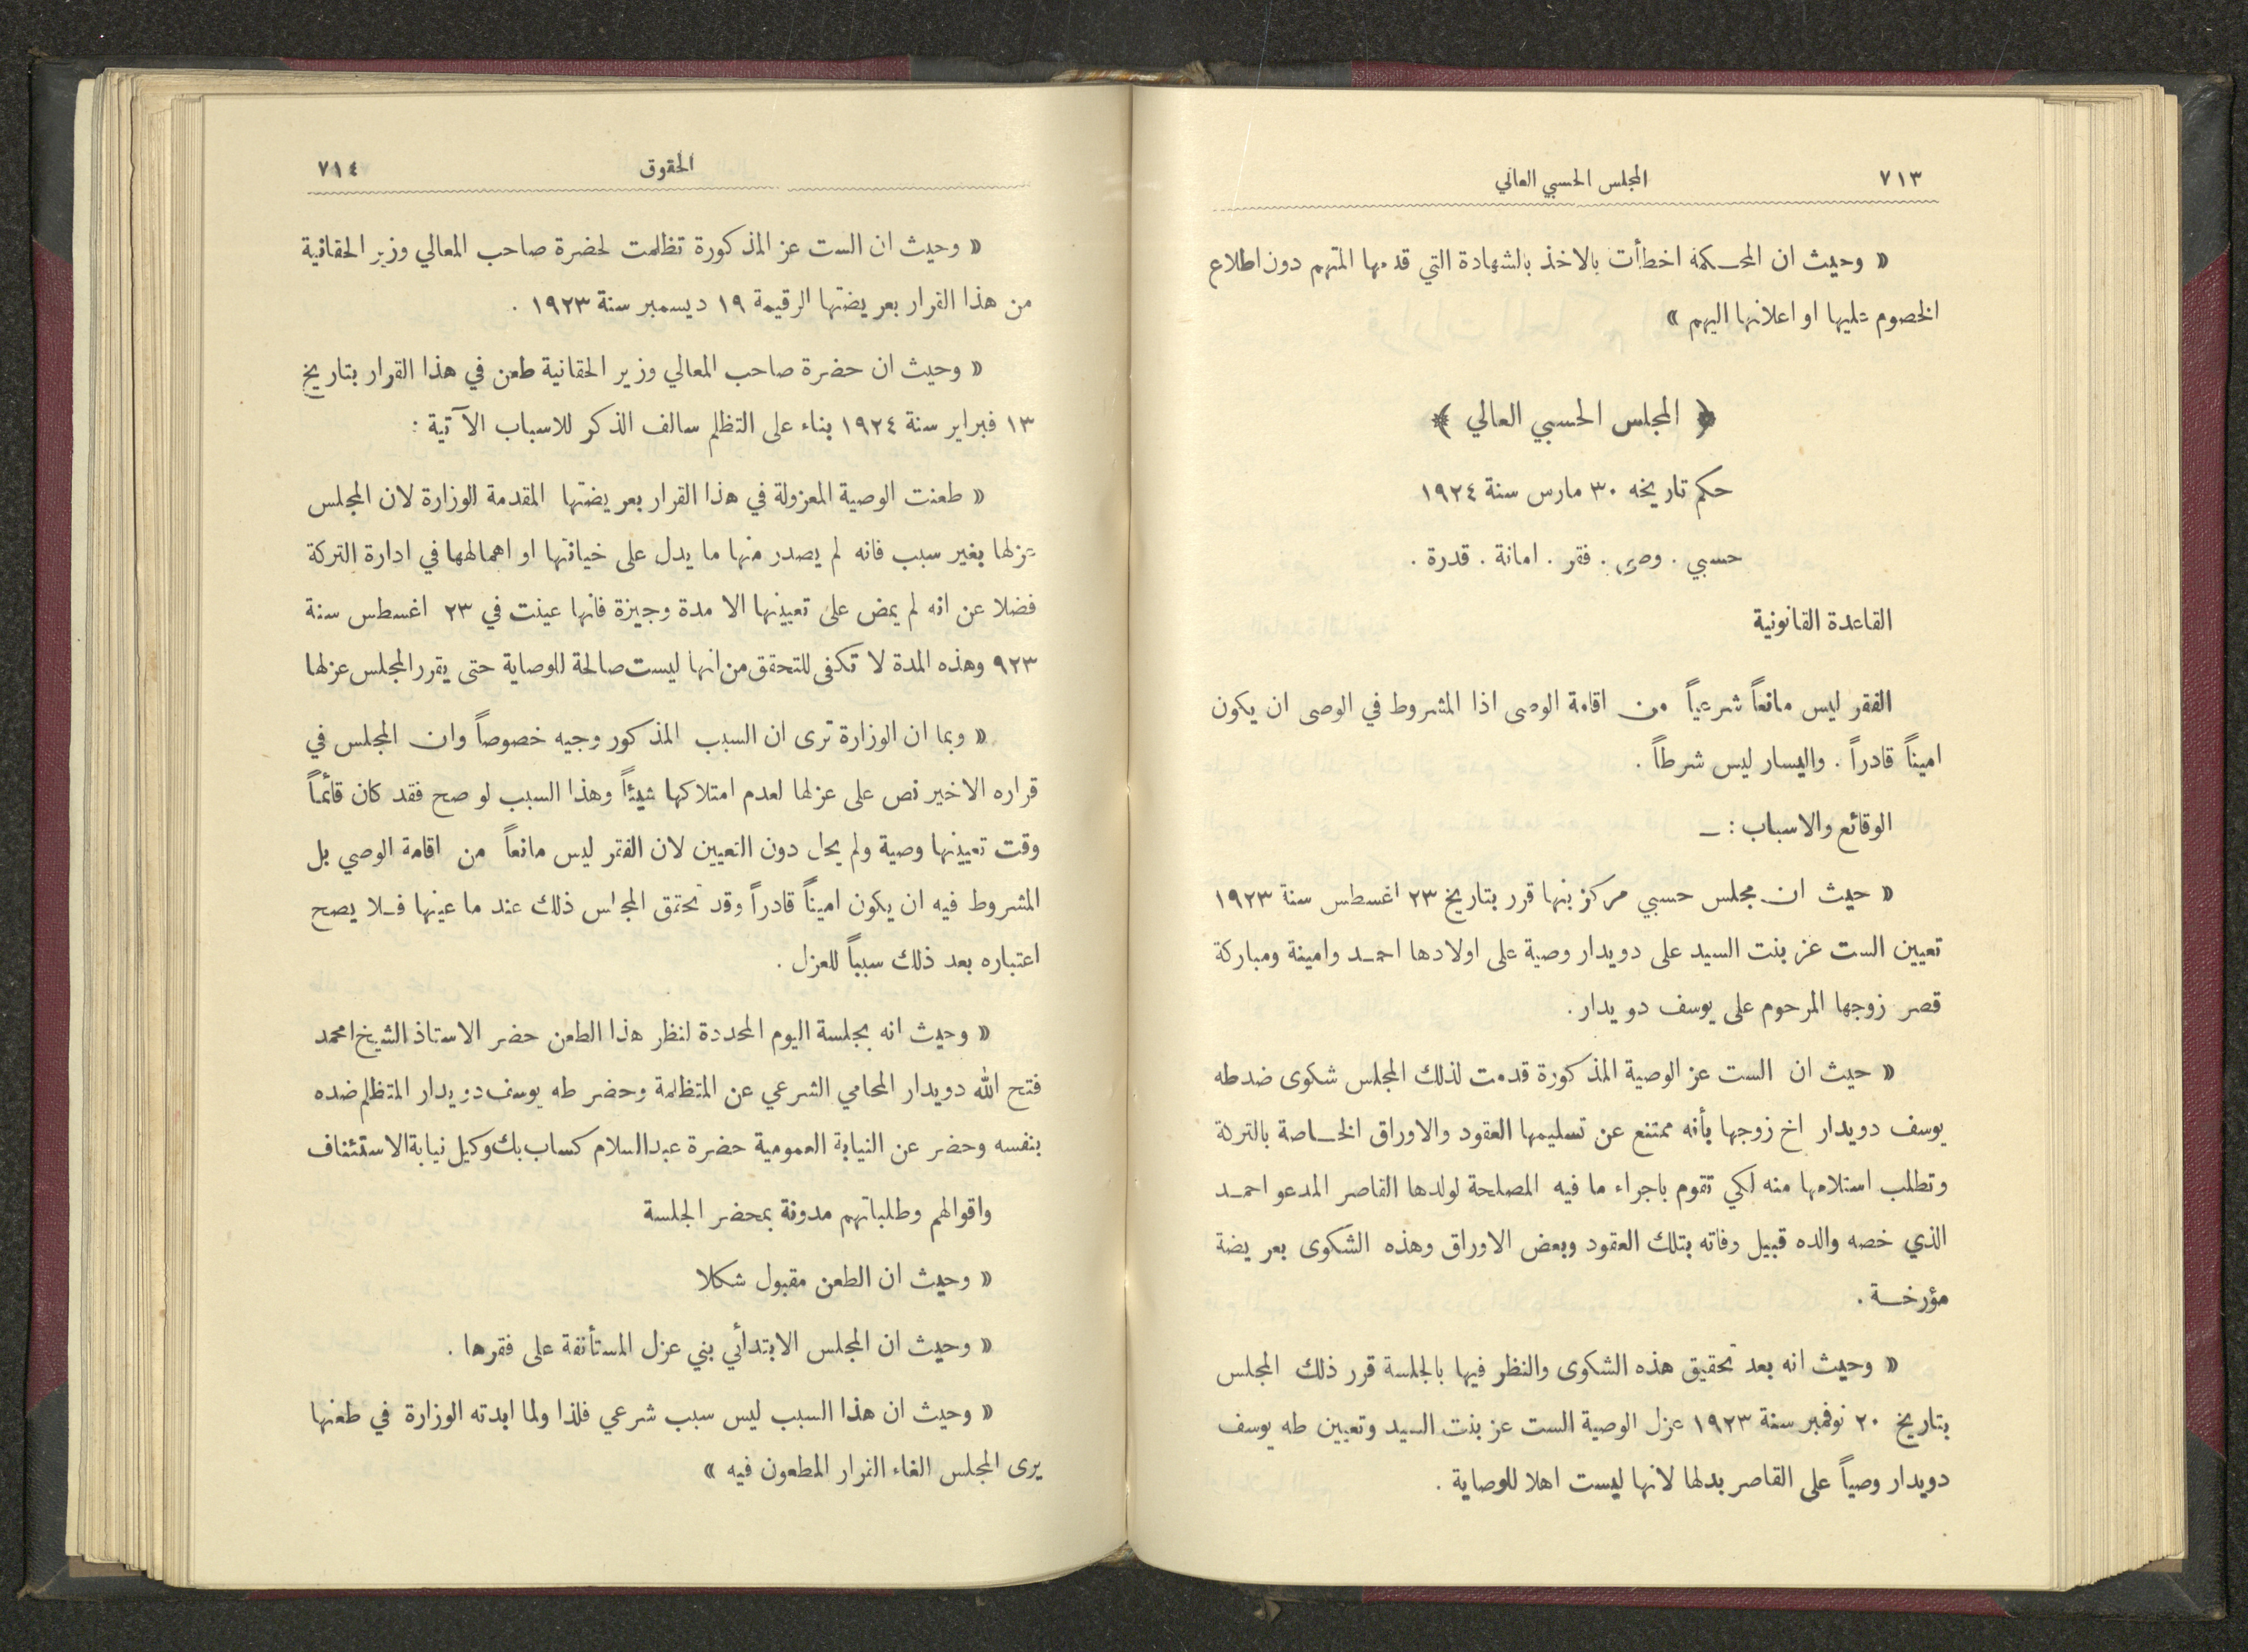 ٧١٣
المجلس الحسبي العالي
« وحيث ان المحكمة اخطأت بالاخذ بالشهادة التي قدمها المتهم دون اطلاع
الخصوم عليها او اعلانها اليهم »
﴿ المجلس الحسبي العالي ﴾
حكم تاريخه ٣٠ مارس سنة ١٩٢٤
حسبي . وصى . فقر . امانة . قدرة .
القاعدة القانونية
الفقر ليس مانعاً شرعياً من اقامة الوصى اذا المشروط في الوصى ان يكون
اميناً قادراً . واليسار ليس شرطاً .
الوقائع والاسباب : —
« حيث ان مجلس حسبي مركز بنها قرر بتاريخ ٢٣ اغسطس سنة ١٩٢٣
تعيين الست عز بنت السيد على دويدار وصية على اولادها احمد وامينة ومباركة
قصر زوجها المرحوم على يوسف دويدار.
« حيث ان الست عز الوصية المذكورة قدمت لذلك المجلس شكوى ضد طه
يوسف دويدار اخ زوجها بأنه ممتنع عن تسليمها العقود والاوراق الخاصة بالتركة
وتطلب استلامها منه لكي تقوم باجراء ما فيه المصلحة لولدها القاصر المدعو احمد
الذي خصه والده قبيل وفاته بتلك العقود وبعض الاوراق وهذه الشكوى بعريضة
مؤرخة .
« وحيث انه بعد تحقيق هذه الشكوى والنظر فيها بالجلسة قرر ذلك المجلس
بتاريخ ٢٠ نوفمبر سنة ١٩٢٣ عزل الوصية الست عز بنت السيد وتعيين طه يوسف
دويدار وصياً على القاصر بدلها لانها ليست اهلا للوصاية .
الحقوق
٧١٤
« وحيث ان الست عز المذكورة تظلمت لحضرة صاحب المعالي وزير الحقانية
من هذا القرار بعريضتها الرقيمة ١٩ ديسمبر سنة ١٩٢٣ .
« وحيث ان حضرة صاحب المعالي وزير الحقانية طعن في هذا القرار بتاريخ
١٣ فبراير سنة ١٩٢٤ بناء على التظلم سالف الذكر للاسباب الآتية :
« طعنت الوصية المعزولة في هذا القرار بعريضتها المقدمة للوزارة لان المجلس
عزلها بغير سبب فانه لم يصدر منها ما يدل على خيانتها او اهمالها في ادارة التركة
فضلا عن انه لم يمض على تعيينها الا مدة وجيزة فانها عينت في ٢٣ اغسطس سنة
٩٢٣ وهذه المدة لا تكفى للتحقق من انها ليست صالحة للوصاية حتى يقرر المجلس عزلها
« وبما ان الوزارة ترى ان السبب المذكور وجيه خصوصاً وان المجلس في
قراره الاخير نص على عزلها لعدم امتلاكها شيئاً وهذا السبب لو صح فقد كان قائماً
وقت تعيينها وصية ولم يحل دون التعيين لان الفقر ليس مانعاً من اقامة الوصي بل
المشروط فيه ان يكون اميناً قادراً وقد تحقق المجلس ذلك عند ما عينها فلا يصح
اعتباره بعد ذلك سبباً للعزل .
« وحيث انه بجلسة اليوم المحددة لنظر هذا الطعن حضر الاستاذ الشيخ امحمد
فتح الله دويدار المحامي الشرعي عن المتظلمة وحضر طه يوسف دويدار المتظلم ضده
بنفسه وحضر عن النيابة العمومية حضرة عبد السلام كساب بك وكيل نيابة الاستئناف
واقوالهم وطلباتهم مدونة بمحضر الجلسة
« وحيث ان الطعن مقبول شكلا
« وحيث ان المجلس الابتدأي بني عزل المستأنفة على فقرها .
« وحيث ان هذا السبب ليس سبب شرعي فلذا ولما ابدته الوزارة في طعنها
يرى المجلس الغاء القرار المطعون فيه »